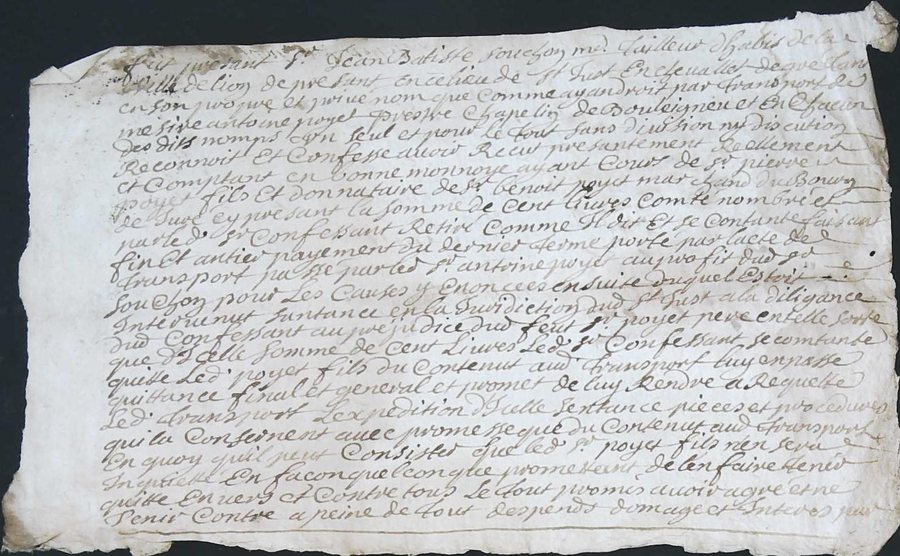 Fut presant Sr Jean Batiste Souchon md. tailleur d'habis de la
Ville de Lion de presant en ce lieu de St Just en chevallet de gré tant
en son propre et privé nom que comme ayan droit par transport de
mesire antoine poyet prestre Chapelin de Bouleigneu et en Chacun
des dits nomps l'un seul et pour le tout sans division ny discution
Reconnoit Et Confesse avoir Recut presantement Reellement
et Comptant en bonne monnoye ayant Cours de Sr pierre
poyet fils Et donnataire de Sr benoit poyet marchand du Bourg
de Juré cy presant la somme de Cent livres Comté nombré et
par led. Sr Confessant Retiré Comme Il dit Et se contante faisant
fin Et antier payement du dernier terme porté par lacte de
transport passé par led Sr. antoine poyet au profit dud Sr
Souchon pour Les Causes y Enoncées ensuite duquel Estoit
Intervenut santance en la Juridiction dud St Just a la diligance
dud Confessant au prejudice dud feut Sr poyet pere en telle sorte
que d'Icelle Somme de Cent Livres Led Sr Confessant, se comtante
quitte Led. poyet fils du Contenut aud transport luy en passe
quittance final et general et promet de luy Rendre a Requette
Led. transport Lexpedition d'Icelle Sentance pieces et procedures
qui la Consernent avec promesse que du Contenut aud transport
En quoy quil peut Consister que led. Sr. poyet fils n'en sera
Inquietté En façon quelconque promettant de l'en faire tenir
quitte Envers et Contre tous Le tout promis avoir agré et ne
venir Contre a peine de tout despends domage et Interes par